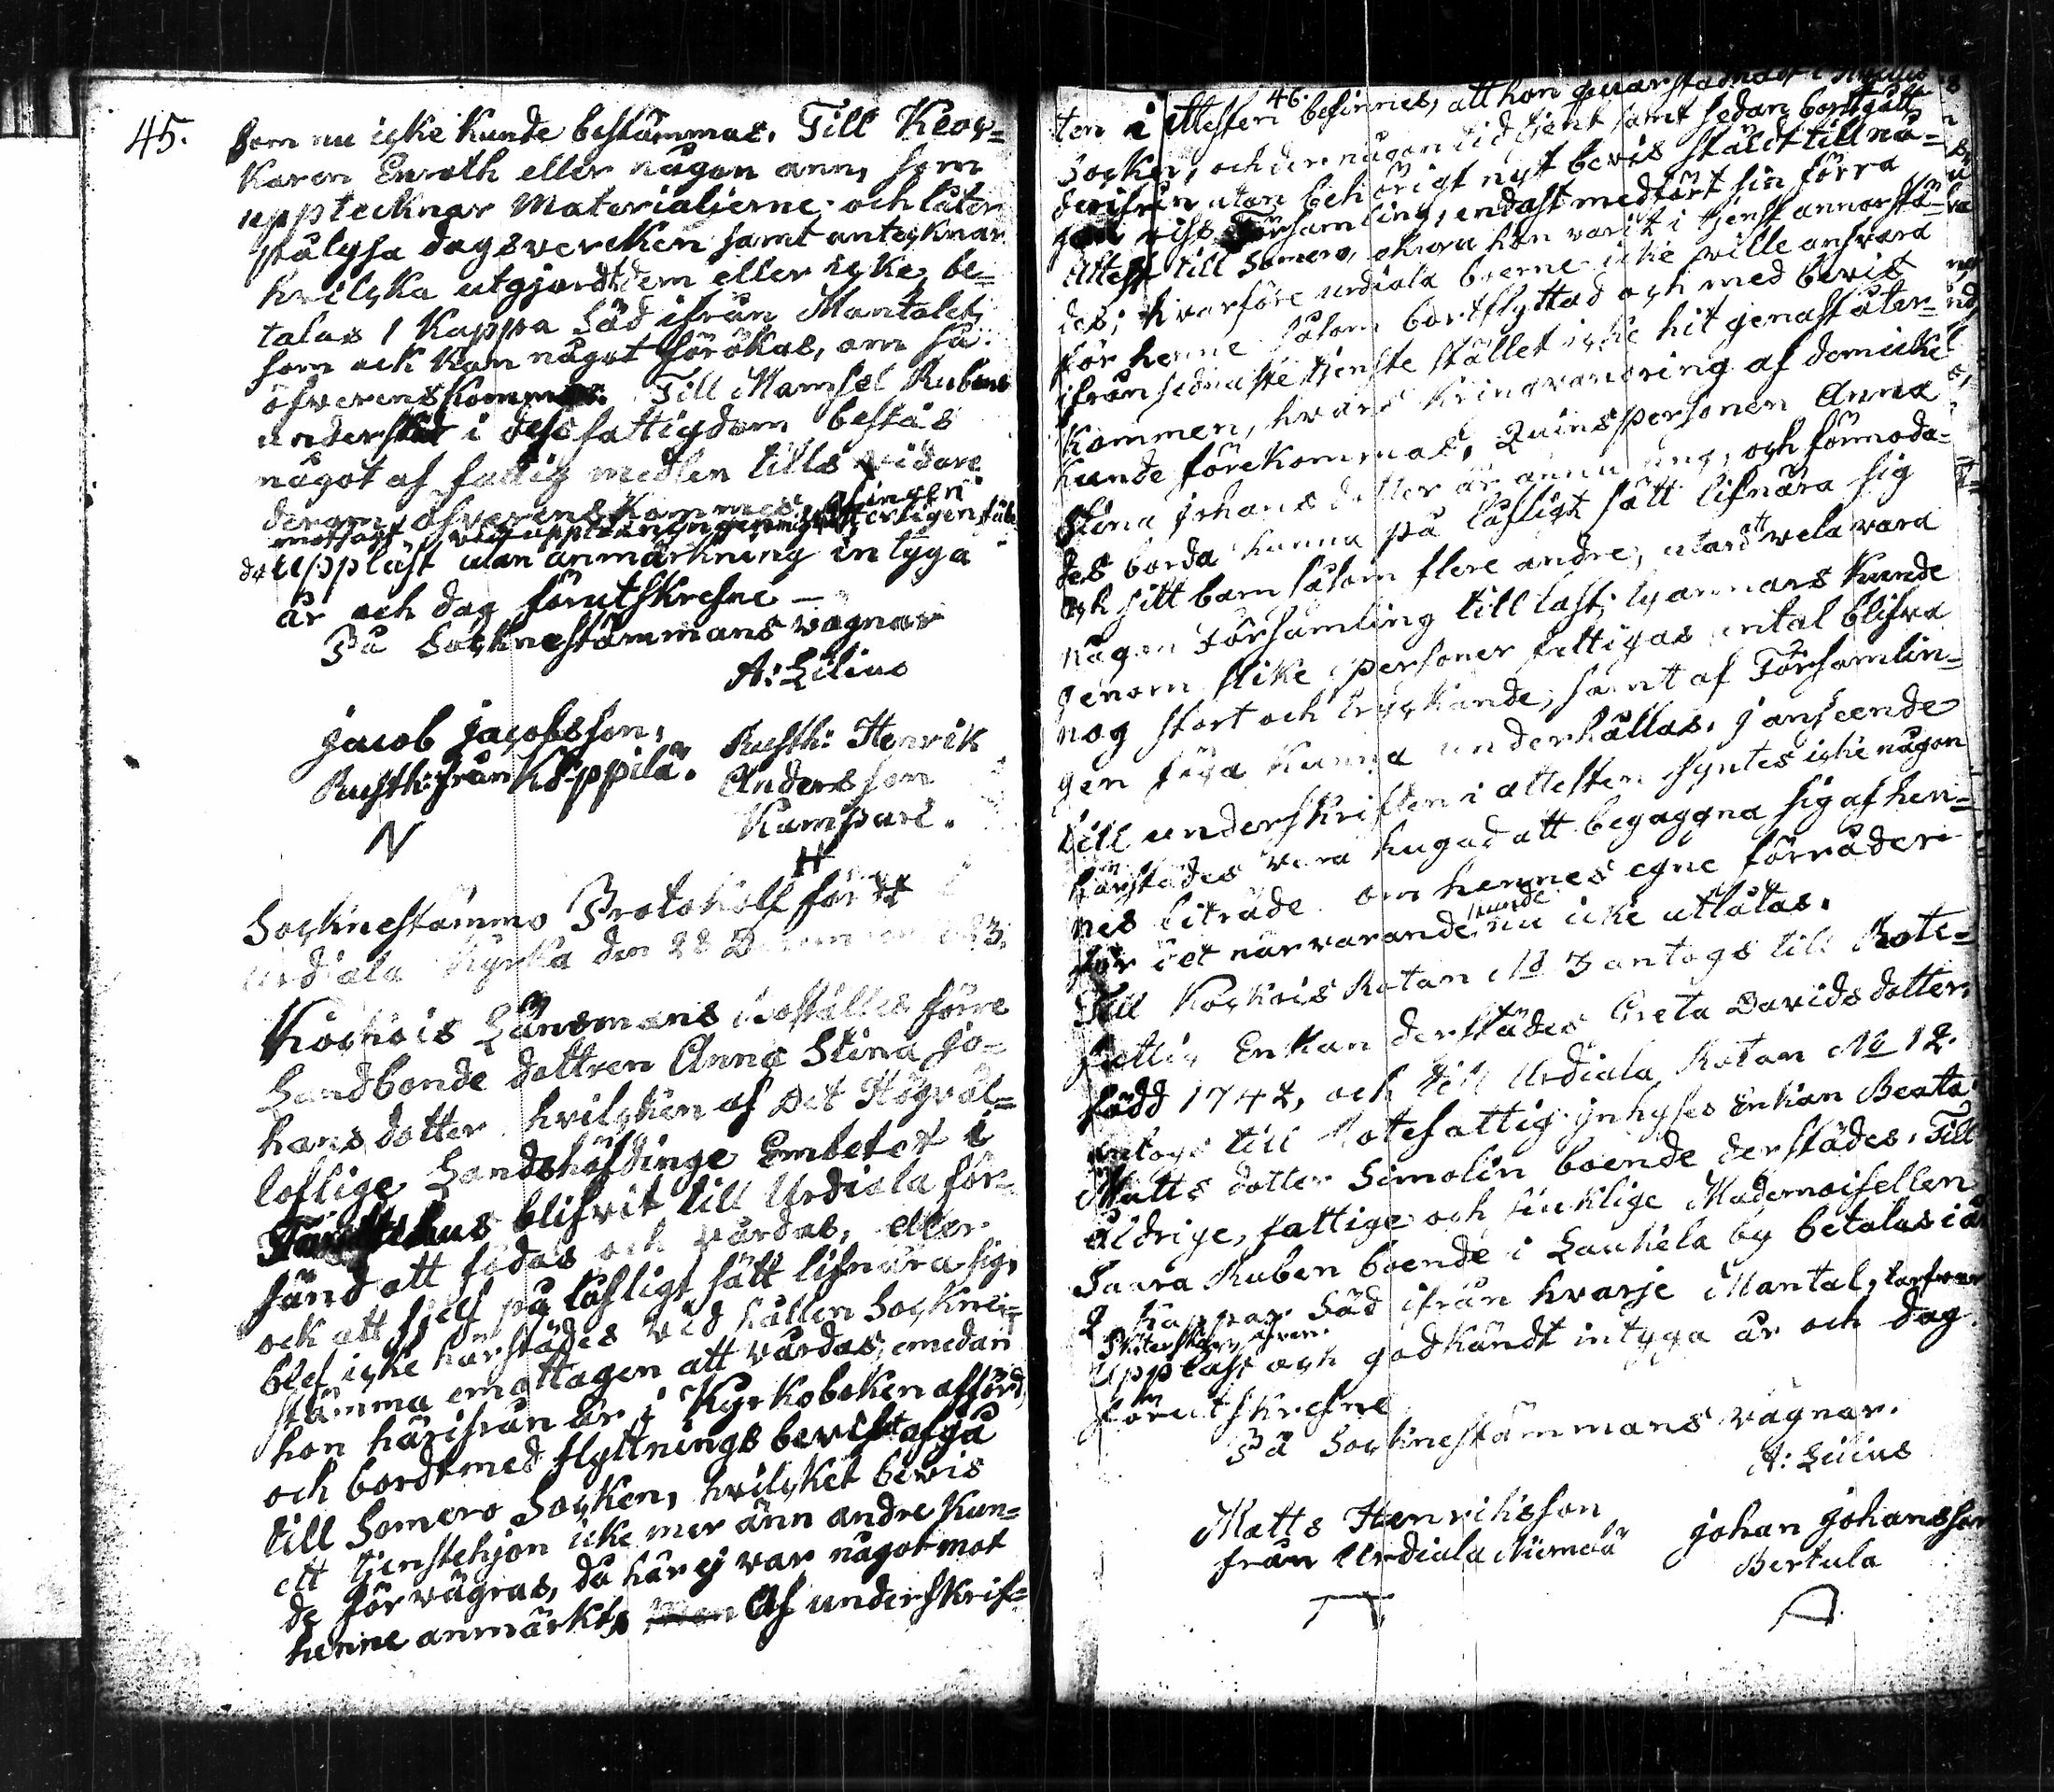 45.
som nu icke kunde bestämmas. Till Klor¬
karen Enroth eller någon ann, som
upptecknar Materialierne och låter
pålysa dagsvercken samt antecknar
hvilcka utgjordt dem eller icke, be¬
talas 1 Kappa Säd ifrån Mantalet,
som ock kan något förökas, om så
öfverenskommes. Till Mamsel Rubens
understöd i dess fattigdom bestås
något af fattig medlen tills vidare
derom öfverenskommes, ingen
motsagt, vid uppläsningen
Uppläst utan anmärkning intyga
år och dag förutskrefne —
På Socknestämmans vägnar
A: Lilius
Jacob Jacobsson,
Rusth: från Köppilä.
N
Rusth: Henrik
Andersson
Kampari.
H
Socknestämmo Protokoll fördt i
Urdiala Kyrka den 28 December 1823.
Kockois Länsmans Boställes förre
Landbonde dottren Anna Stina Jo¬
hansdotter hvilcken af Det Högväl¬
loflige Landshöfdinge Embetet i
Tavastehus blifvit till Urdiala för¬
sänd att födas och vårdas, eller
ock att sjelf på lofligt sätt lifnära sig,
blef icke härstädes vid hållen Sockne¬
stämma emottagen att vårdas, emedan
hon härifrån är i Kyrkoboken afförd,
och bordt med flyttnings bevis afgå
till Somero Socken, hvilcket bevis
ett tjenstehjon icke mer änn andre kun¬
de förvägras, då här ej var något mot
henne anmärkt. Af underskrif¬
46.
ten i Attesten befinnes, att hon
Socken, och der någon tid tjent samt sedan bortgått
derifrån utan behörigt nytt bevis stäldt till nå¬
gon viss Församling, endast medfört sin förra
Attest till Somero, ehvaru hon varit i tjenst annorstä¬
des; hvarföre Urdiala boerne icke ville ansvara
för henne såsom bortflyttad och med bevis
ifrån sednaste tjenste stället icke hit genast åter¬
kommen, hvars kringvandring af dem icke
kunde förekommas. Qvinspersonen Anna
Stina Johansdotter är ännu ung, och förmoda¬
des borda kunna på lofligt sätt lifnära sig
och sitt barn såsom flere andre, utan att vela vara
någon Församling till last; ty annars kunde
genom slike personer fattigas antal blifva
nog stort och tryckande, samt af Församlin¬
gen föga kunna underhållas. I anseende
till underskriften i attesten syntes icke någon
härstädes vara hugad att begagna sig af hen¬
nes biträde. om hennes egne förråder
för det närvarande kunde nu icke utlåtas.
Till Kockois Rotan No 3 antogs till Rote¬
fattig Enkan derstädes Greta Davidsdotter
född 1742, och till Urdiala Rotan No 12.
antogs till Rotefattig Inhyses Enkan Beata
Mattsdotter Simolin boende derstädes. Till
åldrige, fattige och siucklige Mademoisellen
Saara Ruben boende i Laukela by betalas i år
2 kappar Säd ifrån hvarje Mantal,
Uppläst och godkändt intyga år och dag
förutskrefne
På Socknestämmans vägnar.
A: Lilius
Matts Henriksson
från Urdiala Niemelä
Johan Johansson
Bertula